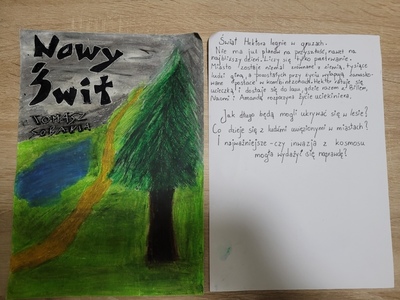 Nowy
Świt
Tomasz
Świat Hektora legnie w gruzach.
Nie ma już planów na przyszłość, nawet na
najbliższy dzień. Liczy się tylko przetrwanie.
Miasta zostają niemal zrównane z ziemią, tysiące
ludzi ginie, a pozostałych przy życiu wyłapują
postacie w kombinezonach. Hektor ratuje się
ucieczką i dostaje się do lasu, gdzie razem z Billem,
Naomi i Amandą rozpoczyna życie uciekiniera.
Jak długo będą mogli ukrywać się w lesie?
Co dzieje się z ludźmi uwięzionymi w miastach?
I najważniejsze - czy inwazja z kosmosu
mogła wydarzyć się naprawdę?